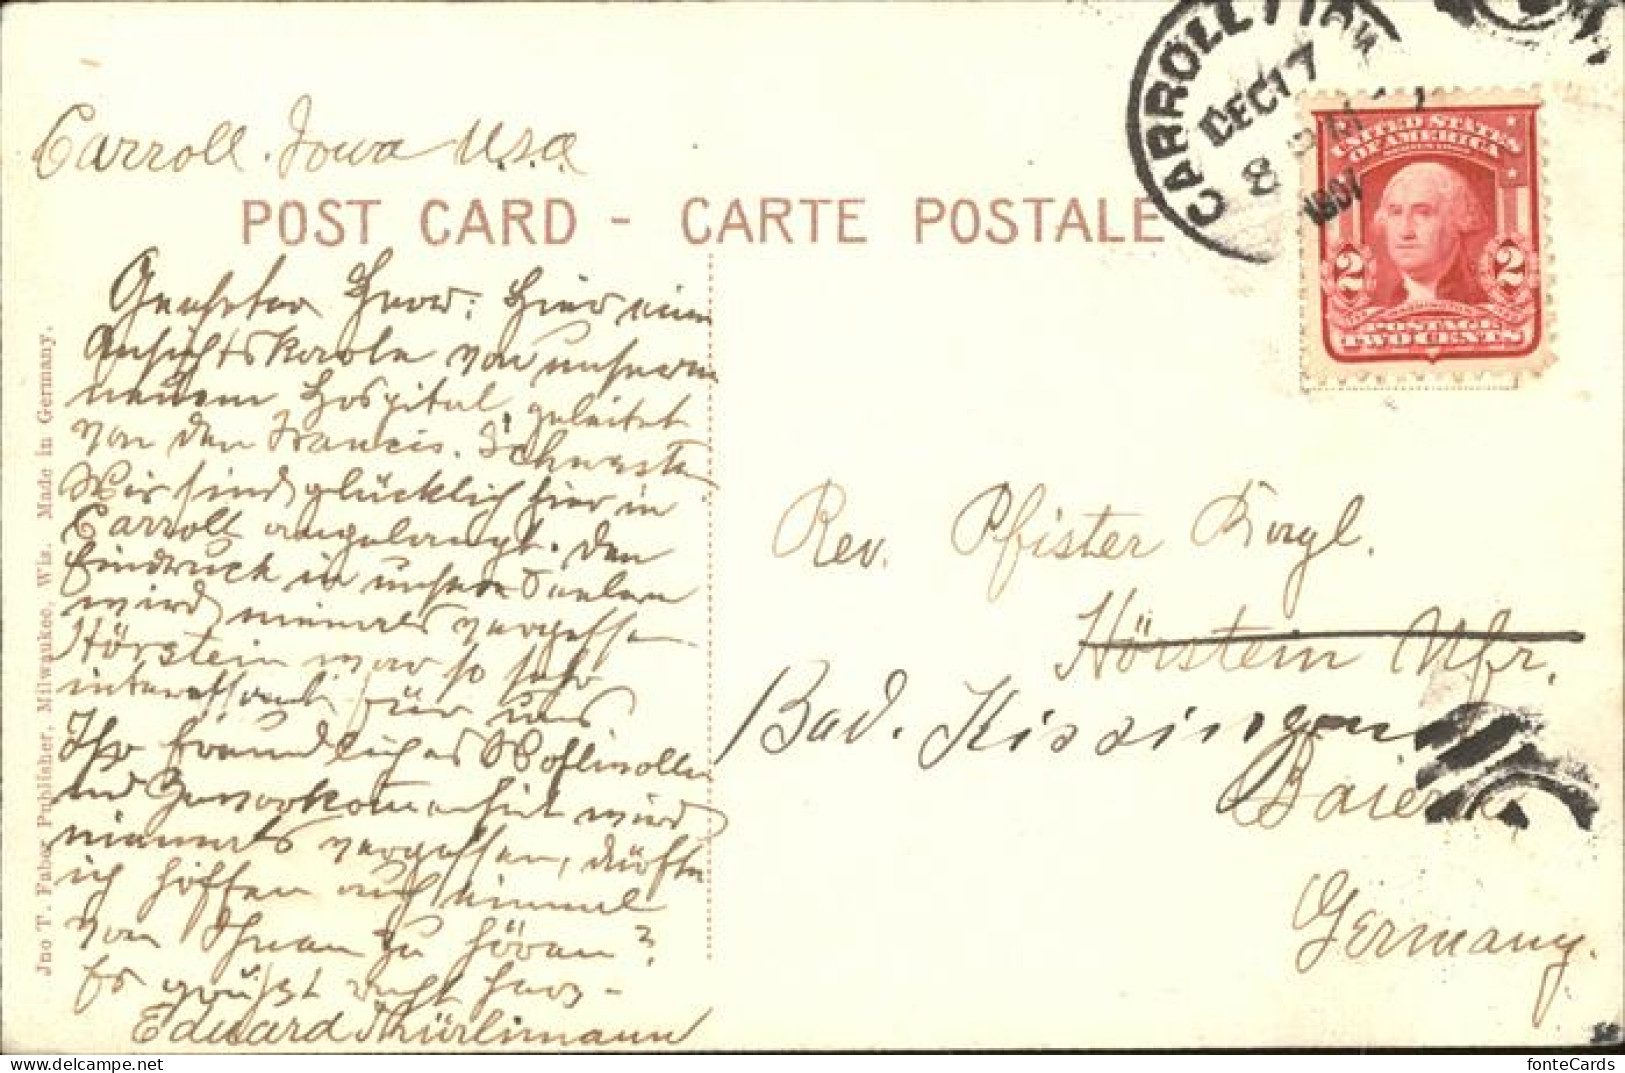 CARROLL, IOWA
DEC 17
8
1907
UNITED STATES
OF AMERICA
2 2
POSTAGE
TWO CENTS
Carroll. Iowa U.S.A
POST CARD - CARTE POSTALE
Geehrter Herr: Hier eine
Ansichtskarte von unserem
neuem Hospital, geleitet
von den Francis. Schwestern
Wir sind glücklich hier in
Carroll angelangt. Den
Eindruck in unsere Seelen
wird niemals vergessen
Hörstein war so sehr
interessant für uns
Ihr freundliches Wohlwollen
und Zuvorkommenheit wird
niemals vergessen, dürfte
ich hoffen auch einmal
von Ihnen zu hören?
Es grüßt recht herz-
Eduard Thürlimann
Jno T. Faber Publisher, Milwaukee, Wis. Made in Germany.
Rev. Pfister
Hörstein Ufr.
Bad. Kissingen
Baiern
Germany.
fonteCards